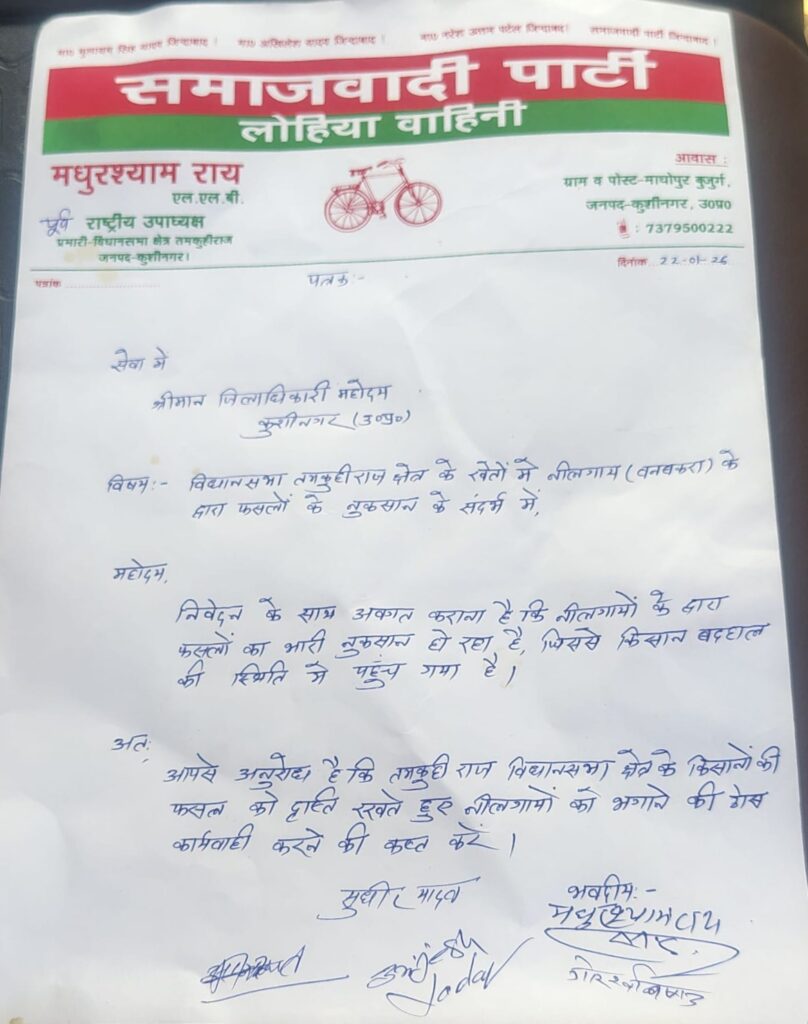 मा0 मुलायम सिंह यादव जिन्दाबाद !   मा0 अखिलेश यादव जिन्दाबाद !   मा0 नरेश उत्तम पटेल जिन्दाबाद!   समाजवादी पार्टी जिन्दाबाद !
समाजवादी पार्टी
लोहिया वाहिनी
मधुरश्याम राय
एल.एल.बी.
पूर्व राष्ट्रीय उपाध्यक्ष
प्रभारी-विधानसभा क्षेत्र तमकुहीराज
जनपद-कुशीनगर।
आवास :
ग्राम व पोस्ट-माघोपुर बुजुर्ग,
जनपद-कुशीनगर, उ0प्र0
: 7379500222
पत्रांक ........................
पत्रक:-
दिनांक 22-01-26
सेवा में
श्रीमान जिलाधिकारी महोदय
कुशीनगर (उ0प्र0)
विषय:- विधानसभा तमकुहीराज क्षेत्र के खेतों में नीलगाय (वनबकरा) के
द्वारा फसलों के नुकसान के संदर्भ में,
महोदय,
निवेदन के साथ अवगत कराना है कि नीलगायों के द्वारा
फसलों का भारी नुकसान हो रहा है, जिससे किसान बदहाल
की स्थिति में पहुंच गया है।
अत:
आपसे अनुरोध है कि तमकुही राज विधानसभा क्षेत्र के किसानों की
फसल को दृष्टि रखते हुए नीलगायों को भगाने की ठोस
कार्यवाही करने की कष्ट करें।
सुधीर यादव
भवदीय:-
मधुरश्याम राय
Yadav